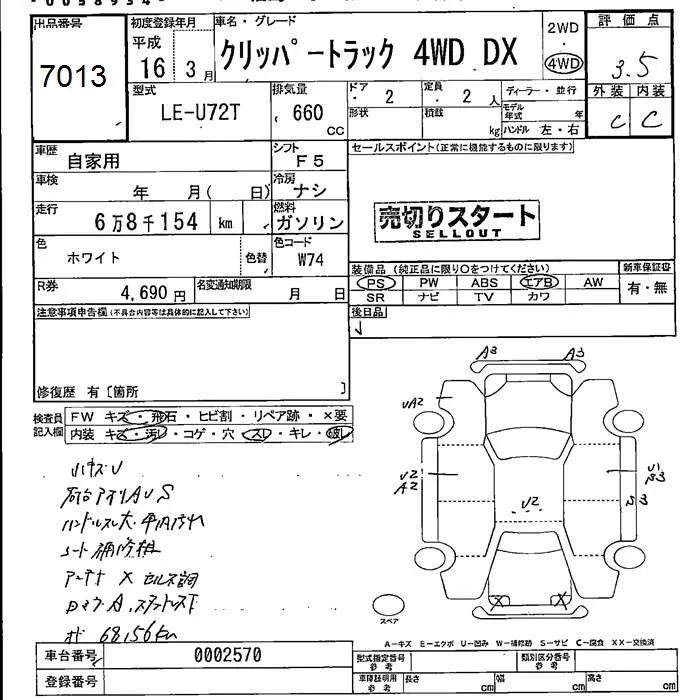 出品番号
7013
初度登録年月
平成
16年 3月
車名・グレード
クリッパートラック 4WD DX
2WD
・
4WD
評価点
3.5
外装 内装
C C
型式
LE-U72T
排気量
660
CC
ドア
・ 2
定員
・ 2 人
形状
積載
kg
ディーラー・並行
モデル
年式 年
ハンドル 左・右
車歴
自家用
シフト
F5
セールスポイント(正常に機能するものに限ります)
車検
年 月( 日)
冷房
ナシ
走行
6万8千154 km
燃料
ガソリン
売切りスタート
SELLOUT
色
ホワイト
色替
色コード
W74
装備品 (純正品に限り○をつけてください)
新車保証書
PS PW ABS エアB AW
有・無
SR ナビ TV カワ
R券
4,690円
名変通知期限
月 日
後日品
注意事項申告欄(不具合内容等は具体的に記入して下さい)
修復歴 有〔箇所 〕
検査員
記入欄
FW キズ・飛石・ヒビ割・リペア跡・×要
内装 キズ・汚レ・コゲ・穴・スレ・キレ・破レ
A3 A3
UA2
U2
A2
U2
X X
スペア
A-キズ E-エクボ U-凹み W-補修跡 S-サビ C-腐食 XX-交換済
車台番号
0002570
登録番号
型式指定番号
参考
類別区分番号
参考
車庫証明用
参考
長さ cm
幅 cm
高さ cm